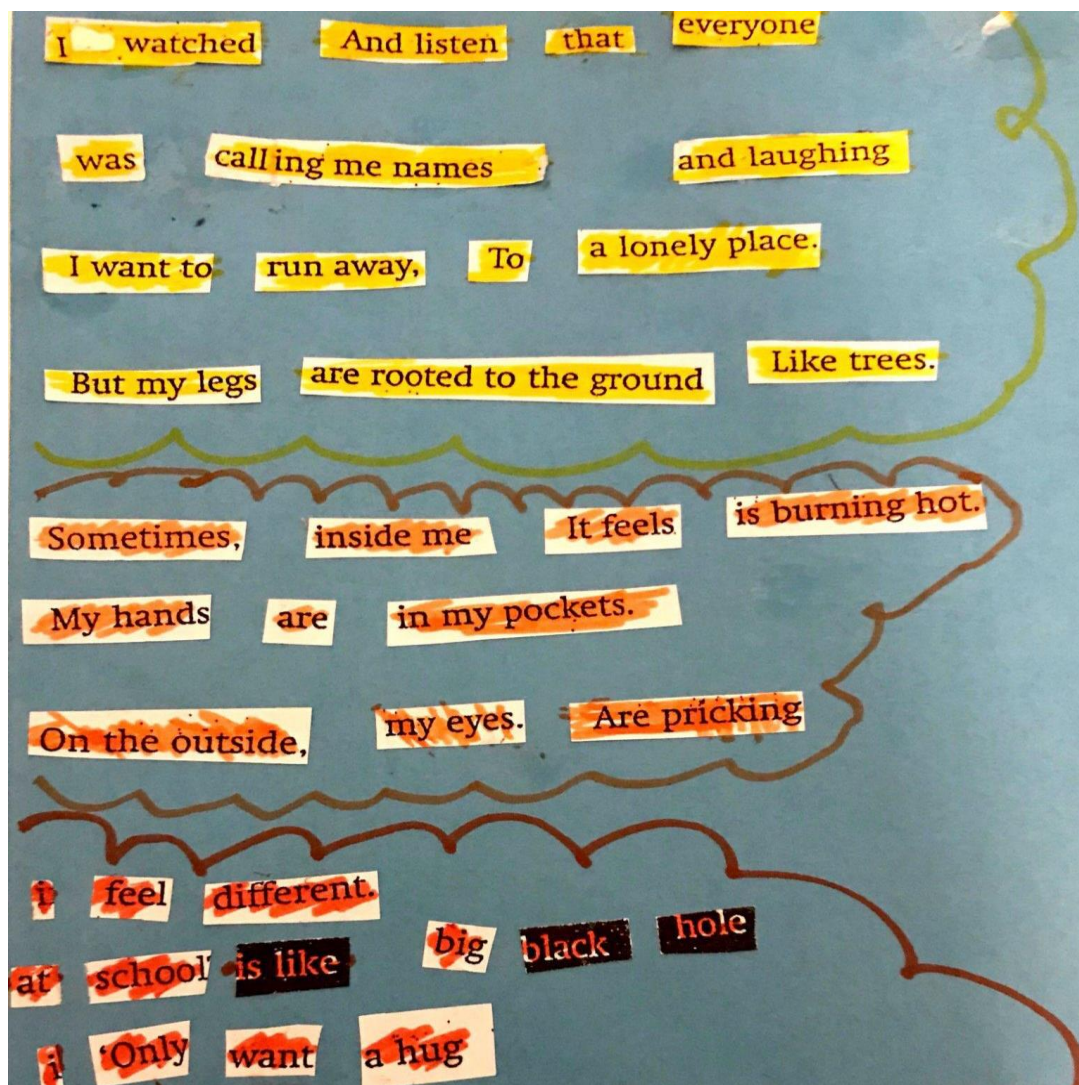 I watched And listen that everyone
was calling me names and laughing
I want to run away, To a lonely place.
But my legs are rooted to the ground Like trees.
Sometimes, inside me It feels is burning hot.
My hands are in my pockets.
On the outside, my eyes. Are pricking
i feel different.
at school is like big black hole
i 'Only want a hug